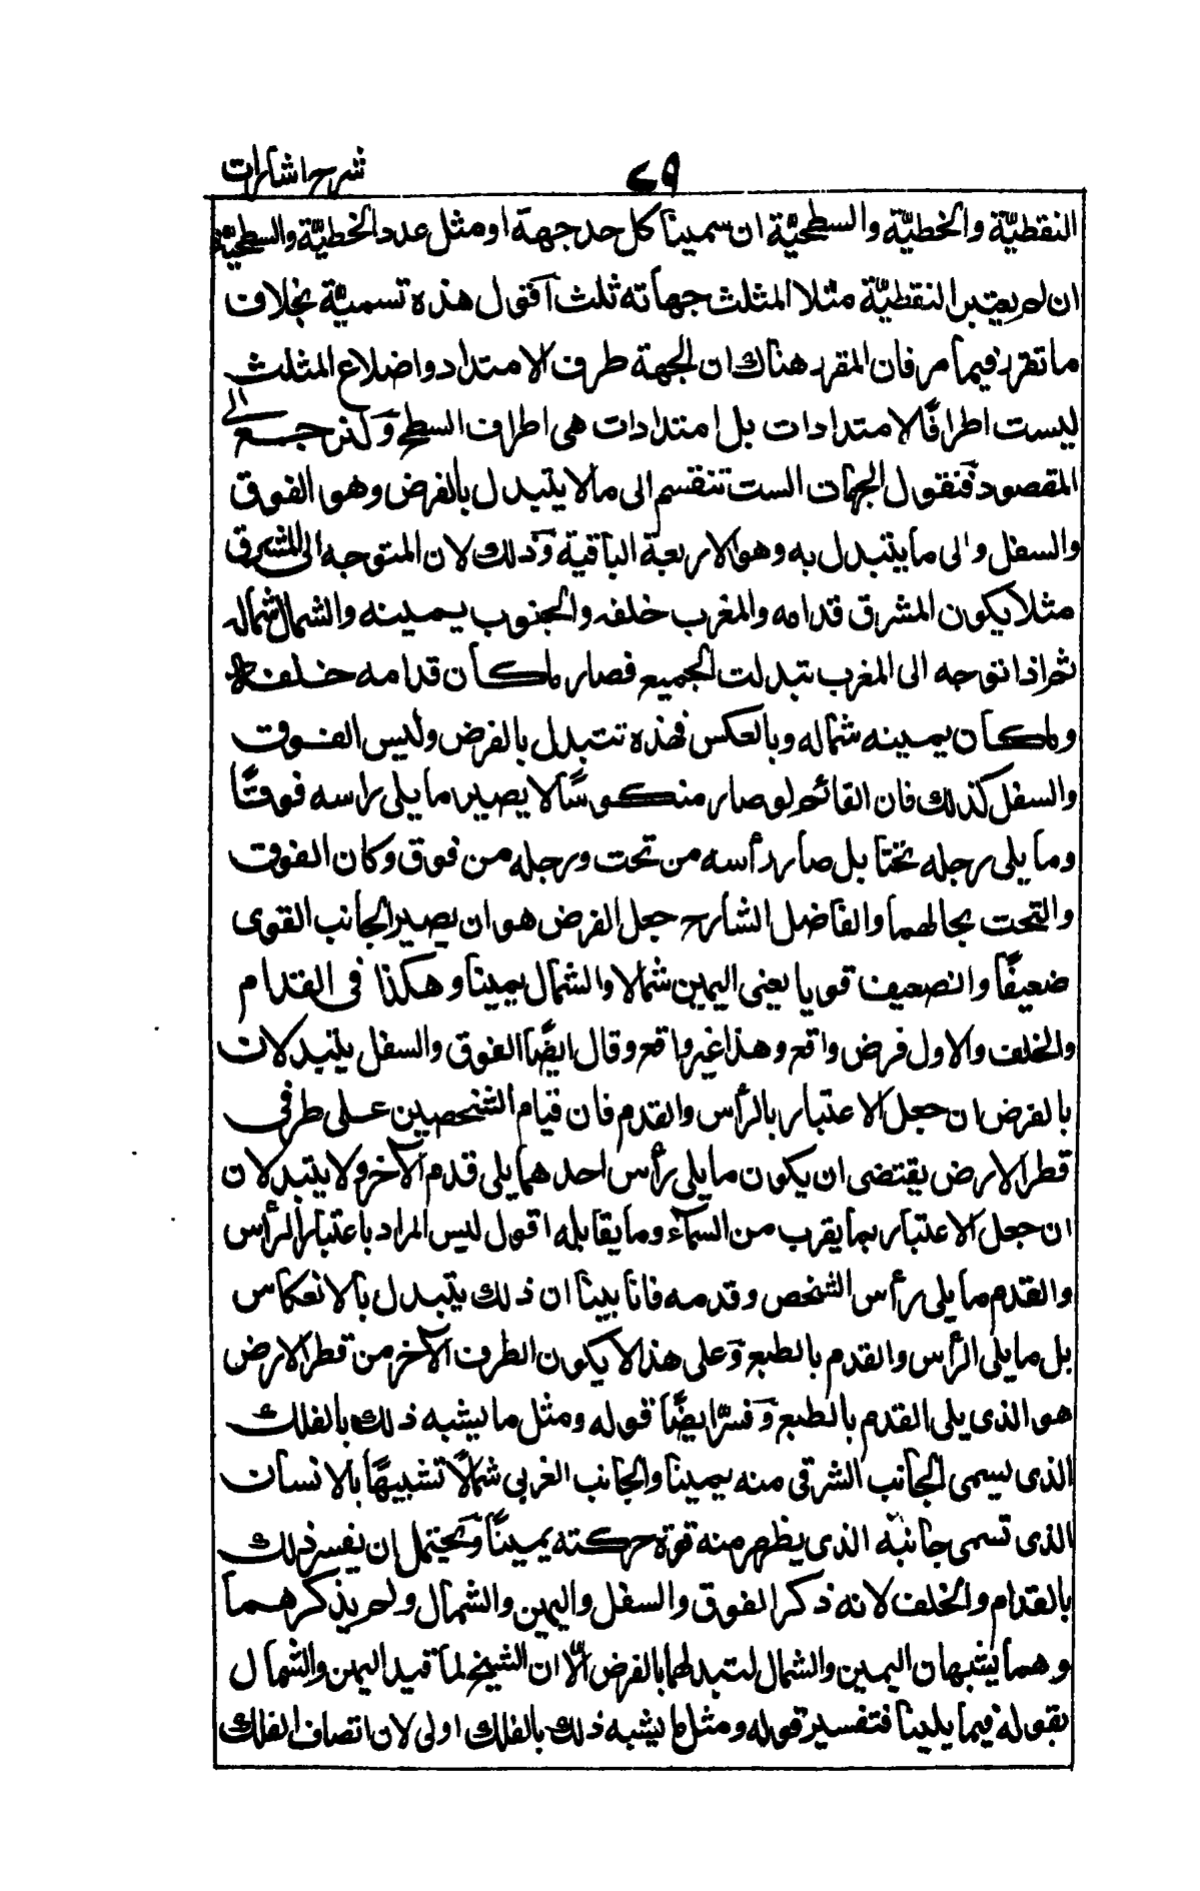 شرح اشارات
٤٩
النقطيّة والخطيّة والسطحيّة ان سمينا كل حد جهة او مثل عدد الخطيّة والسطحيّة
ان لم يعتبر النقطيّة مثلا المثلث جهاته ثلث اقول هذه تسميّة بخلاف
ما تقرر فيما مر فان المقرر هناك ان الجهة طرف الامتداد واضلاع المثلث
ليست اطرافًا لامتدادات بل امتدادات هى اطراف السطح ولنرجع الى
المقصود فنقول الجهات الست تنقسم الى ما لا يتبدل بالفرض وهو الفوق
والسفل والى ما يتبدل به وهو الاربعة الباقية وذلك لان المتوجه الى المشرق
مثلا يكون المشرق قدامه والمغرب خلفه والجنوب يمينه والشمال شماله
ثم اذا توجه الى المغرب تبدلت الجميع فصار ما كان قدامه خلفه
وما كان يمينه شماله وبالعكس فهذه تتبدل بالفرض وليس الفوق
والسفل كذلك فان القائم لو صار منكوسًا لا يصير ما يلى راسه فوقًا
وما يلى رجله تحتا بل صار رأسه من تحت ورجله من فوق وكان الفوق
والتحت بحالهما والفاضل الشارح جعل الفرض هو ان يصير الجانب القوى
ضعيفًا والضعيف قويا يعنى اليمين شمالا والشمال يمينا وهكذا فى القدام
والخلف والاول فرض واقع وهذا غير واقع وقال ايضًا الفوق والسفل يتبدلان
بالفرض ان جعل الاعتبار بالرأس والقدم فان قيام الشخصين على طرفى
قطر الارض يقتضى ان يكون ما يلى رأس احدهما يلى قدم الآخر ولا يتبدلان
ان جعل الاعتبار بما يقرب من السماء وما يقابله اقول ليس المراد باعتبار الرأس
والقدم ما يلى رأس الشخص وقدمه فانا بينا ان ذلك يتبدل بالانعكاس
بل ما يلى الرأس والقدم بالطبع وعلى هذا لا يكون الطرف الآخر من قطر الارض
هو الذى يلى القدم بالطبع وفسّر ايضًا قوله ومثل ما يشبه ذلك بالفلك
الذى يسمى الجانب الشرقى منه يمينا والجانب الغربى شمالًا تشبيهًا بالانسان
الذى تسمى جانبه الذى يظهر منه قوة حركته يمينًا ويحتمل ان يفسر ذلك
بالقدام والخلف لانه ذكر الفوق والسفل واليمين والشمال ولم يذكرهما
وهما يشبهان اليمين والشمال لتبدلهما بالفرض الّا ان الشيخ لما قيد اليمين والشمال
بقوله فيما يلينا فتفسير قوله ومثل ما يشبه ذلك بالفلك اولى لان اتصاف الفلك